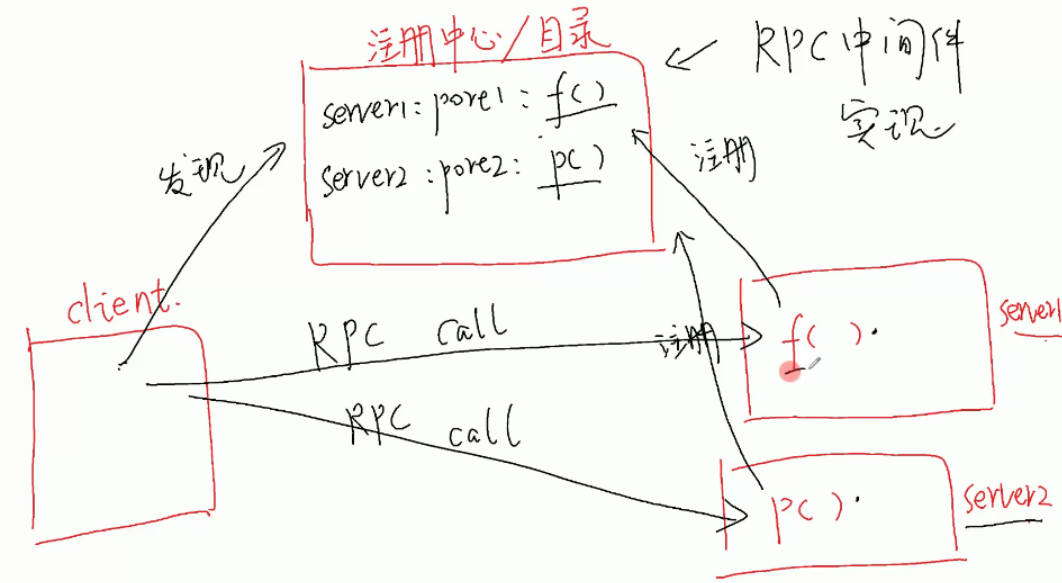 注册中心/目录
RPC中间件
实现
server1:pore1: f()
server2:pore2: p()
发现
注册
client.
RPC call
注册
f( ).
server1
RPC call
p( ).
server2